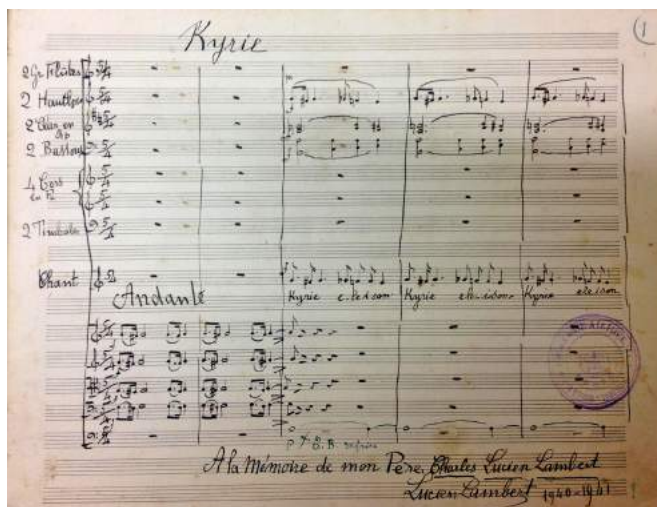 Kyrie
1
2 Gr Flûtes
2 Hautbois
2
2 Bassons
4 Cors
2 Timbales
Chant
Andante
Kyrie eleison Kyrie eleison Kyrie eleison
A la Mémoire de mon Père, Charles Lucien Lambert
Lucien Lambert 1940-1941